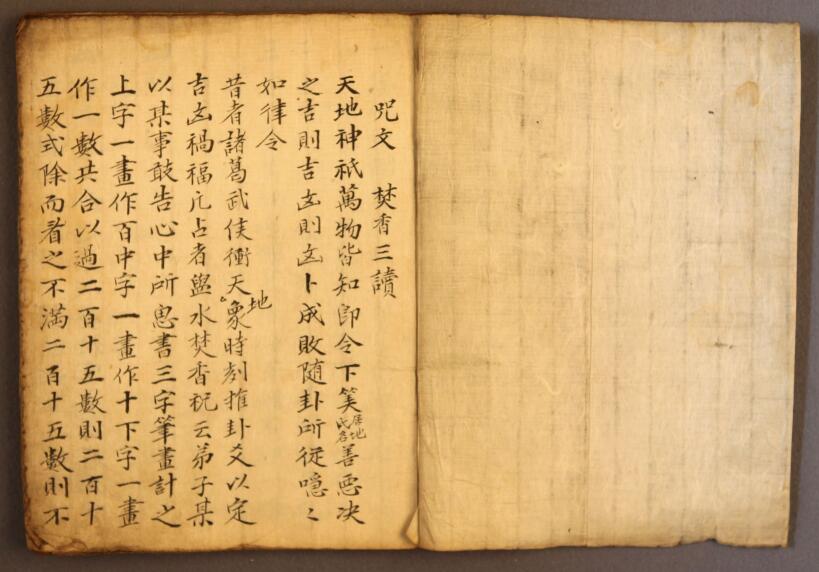 咒文 焚香三讀
天地神祇萬物皆知卽令下筭居地氏名善悪决
之吉則吉凶則凶卜成敗随卦所從喼〻
如律令
昔者諸葛武侯衝天地象時刻推卦爻以定
吉凶禍福凡占者盥水焚香祝云弟子某
以某事敢告心中所思書三字筆畫計之
上字一畫作百中字一畫作十下字一畫
作一數共合以過二百十五數則二百十
五數式除而看之不滿二百十五數則不